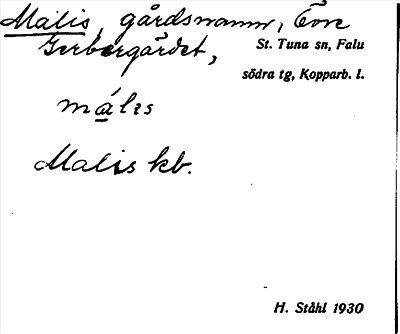 Malis, gårdsnamn, Övre
Gerbergärdet, St. Tuna sn, Falu
södra tg, Kopparb. l.
màlɪs
Malis kb.
H. Ståhl 1930